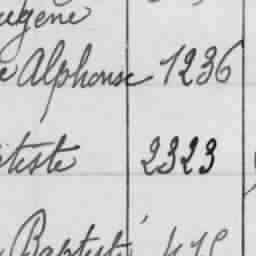 ugène
e Alphonse 1236
tiste 2323
Baptiste